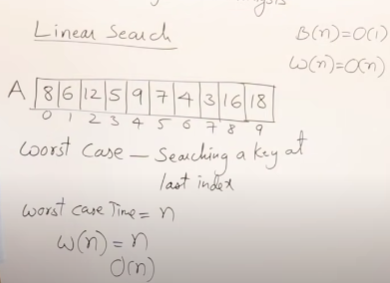 Linear Search
B(n)=O(1)
W(n)=O(n)
A 8 6 12 5 9 7 4 3 16 18
0 1 2 3 4 5 6 7 8 9
Worst Case – Searching a key at
last index
Worst case Time = n
W(n) = n
O(n)